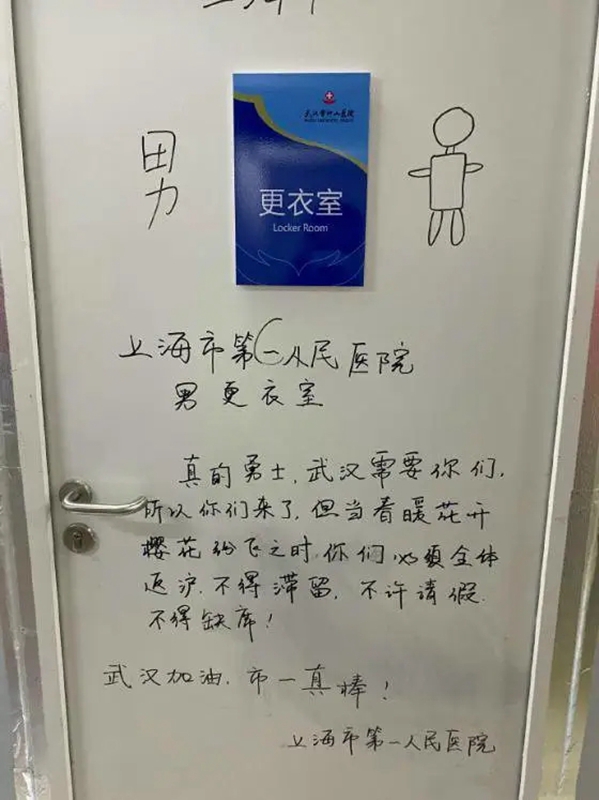 男
武汉雷神山医院
更衣室
Locker Room
上海市第一人民医院
男更衣室
真的勇士,武汉需要你们,
所以你们来了,但当春暖花开
樱花纷飞之时,你们必须全体
返沪,不得滞留,不许请假,
不得缺席!
武汉加油,市一真棒!
上海市第一人民医院